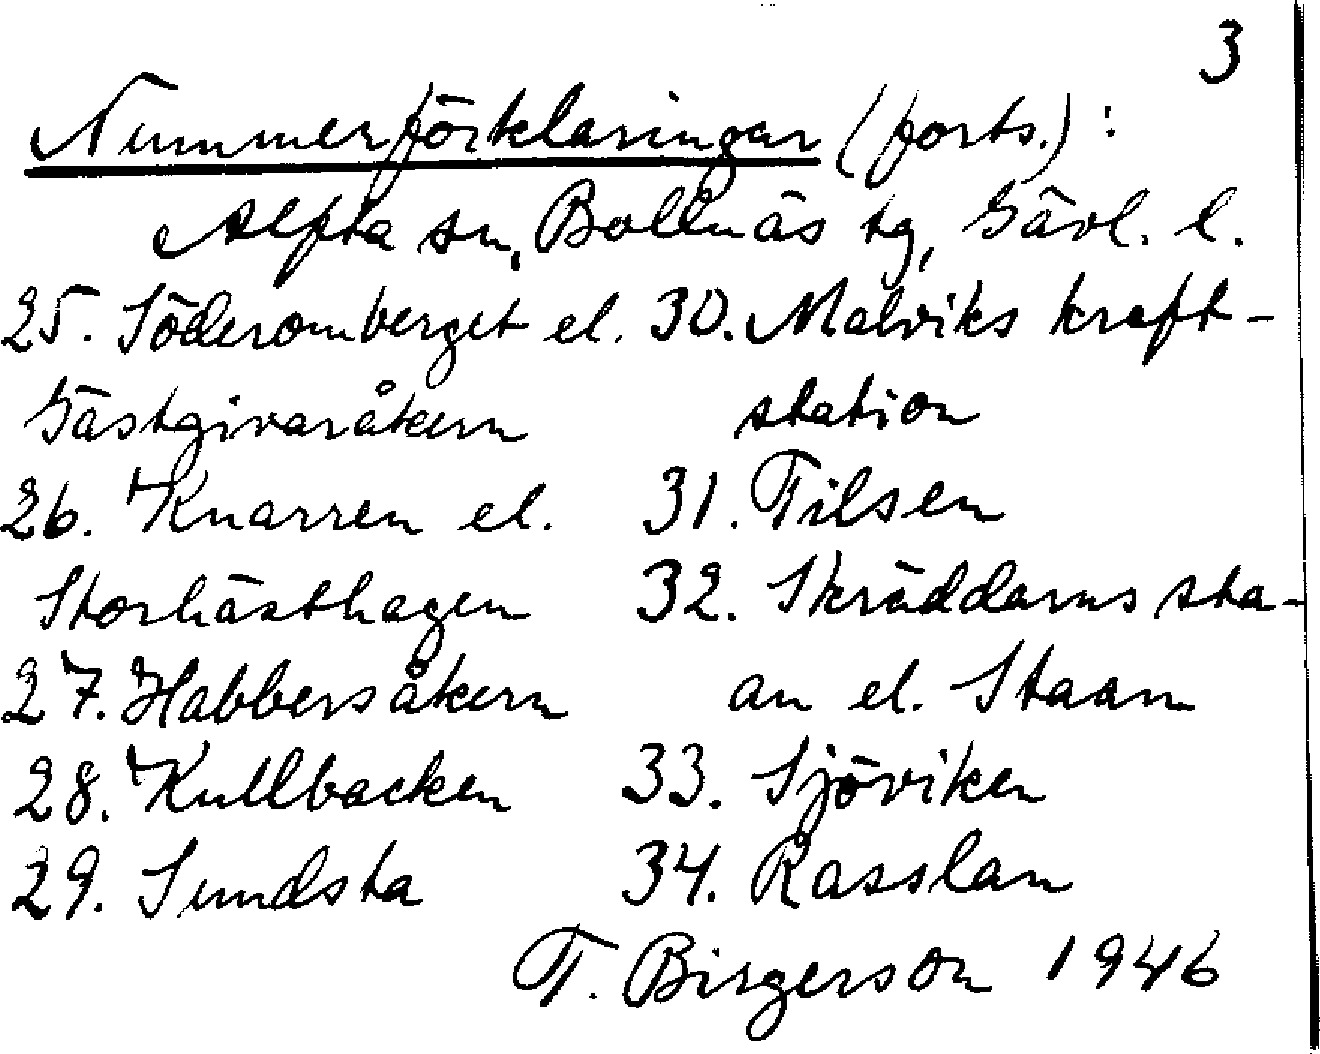 3
Nummerförklaringar (forts.):
Alfta sn, Bollnäs tg, Gävl. l.
25. Söderomberget el.
Gästgivaråkern
26. Knarren el.
Storhästhagen
27. Habbersåkern
28. Kullbacken
29. Sundsta
30. Malviks kraft-
station
31. Filsen
32. Skräddarns sta-
an el. Staan
33. Sjöviken
34. Rasslan
T. Birgerson 1946